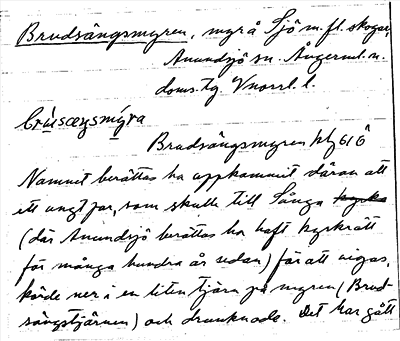 Brudsängsmyren, myr å Sjö m. fl. skogar,
Anundsjö sn. Ångerml. n.
doms. tg. Vnorrl. l.
Brudsängsmyren
Namnet berättas ha uppkommit därav att
ett ungt par, som skulle till Sånga kyrka
(där Anundsjö berättas ha haft kyrkrätt
för många hundra år sedan) för att vigas,
körde ner i en liten tjärn på myren (Brud-
sängstjärnen) och drunknade. Det har gått